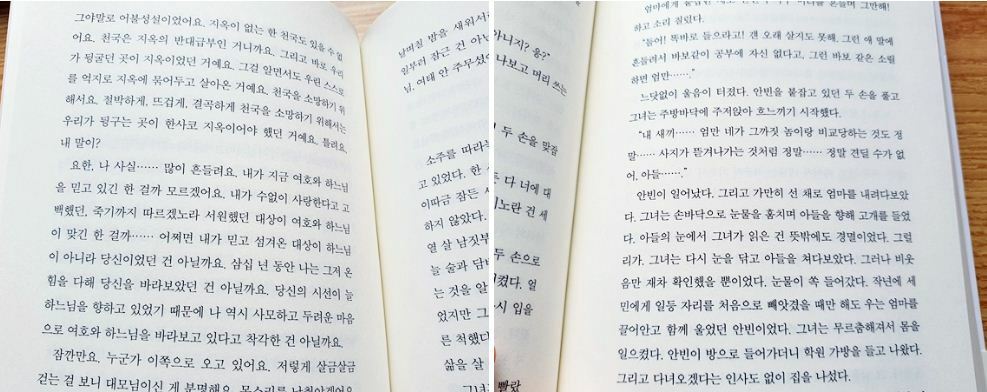 그야말로 어불성설이었어요. 지옥이 없는 한 천국도 있을 수 없
어요. 천국은 지옥의 반대급부인 거니까요. 그리고 바로 우리
가 뒹굴던 곳이 지옥이었던 거예요. 그걸 알면서도 우린 스스로
를 억지로 지옥에 묶어두고 살아온 거예요. 천국을 소망하기 위
해서요. 절박하게, 뜨겁게, 결곡하게 천국을 소망하기 위해서는
우리가 뒹구는 곳이 한사코 지옥이어야 했던 거예요. 틀려요,
내 말이?
요한, 나 사실…… 많이 흔들려요. 내가 지금 여호와 하느님
을 믿고 있긴 한 걸까 모르겠어요. 내가 수없이 사랑한다고 고
백했던, 죽기까지 따르겠노라 서원했던 대상이 여호와 하느님
이 맞긴 한 걸까…… 어쩌면 내가 믿고 섬겨온 대상이 하느님
이 아니라 당신이었던 건 아닐까요. 삼십 년 동안 나는 그저 온
힘을 다해 당신을 바라보았던 건 아닐까요. 당신의 시선이 늘
하느님을 향하고 있었기 때문에 나 역시 사모하고 두려운 마음
으로 여호와 하느님을 바라보고 있다고 착각한 건 아닐까요.
잠깐만요. 누군가 이쪽으로 오고 있어요. 저렇게 살금살금
걷는 걸 보니 대모님이신 게 분명해요.
남며칠 밤을 새워서
일부러 참은 건 아니
님, 여태 안 주무셨
소주를 따라
고 있었다. 한
이따금 잠든
하지 않았다.
열 살 남짓부
늘 술과 담배
는 것을 알
었지만 그
른 척했다.
삶을 살
그녀
아니지? 응?"
나보고 머리 쓰는
두 손을 맞잡
든 다 너에 대
이노란 건 세
두 손으로
켰다. 열
시 입을
빨랐
하고 소리 질렀다.
"들어! 똑바로 들으라고! 걘 오래 살지도 못해. 그런 애 말에
흔들려서 바보같이 공부에 자신 없다고, 그런 바보 같은 소릴
하면 엄만……."
느닷없이 울음이 터졌다. 안빈을 붙잡고 있던 두 손을 풀고
그녀는 주방바닥에 주저앉아 흐느끼기 시작했다.
"내 새끼…… 엄만 네가 그까짓 놈이랑 비교당하는 것도 정
말…… 사지가 뜯겨나가는 것처럼 정말…… 정말 견딜 수가 없
어, 아들……."
안빈이 일어났다. 그리고 가만히 선 채로 엄마를 내려다보았
다. 그녀는 손바닥으로 눈물을 훔치며 아들을 향해 고개를 들었
다. 아들의 눈에서 그녀가 읽은 건 뜻밖에도 경멸이었다. 그럴
리가. 그녀는 다시 눈을 닦고 아들을 쳐다보았다. 그러나 비웃
음만 재차 확인했을 뿐이었다. 눈물이 쏙 들어갔다. 작년에 세
민에게 일등 자리를 처음으로 빼앗겼을 때만 해도 우는 엄마를
끌어안고 함께 울었던 안빈이었다. 그녀는 무르춤해져서 몸을
일으켰다. 안빈이 방으로 들어가더니 학원 가방을 들고 나왔다.
그리고 다녀오겠다는 인사도 없이 집을 나섰다.